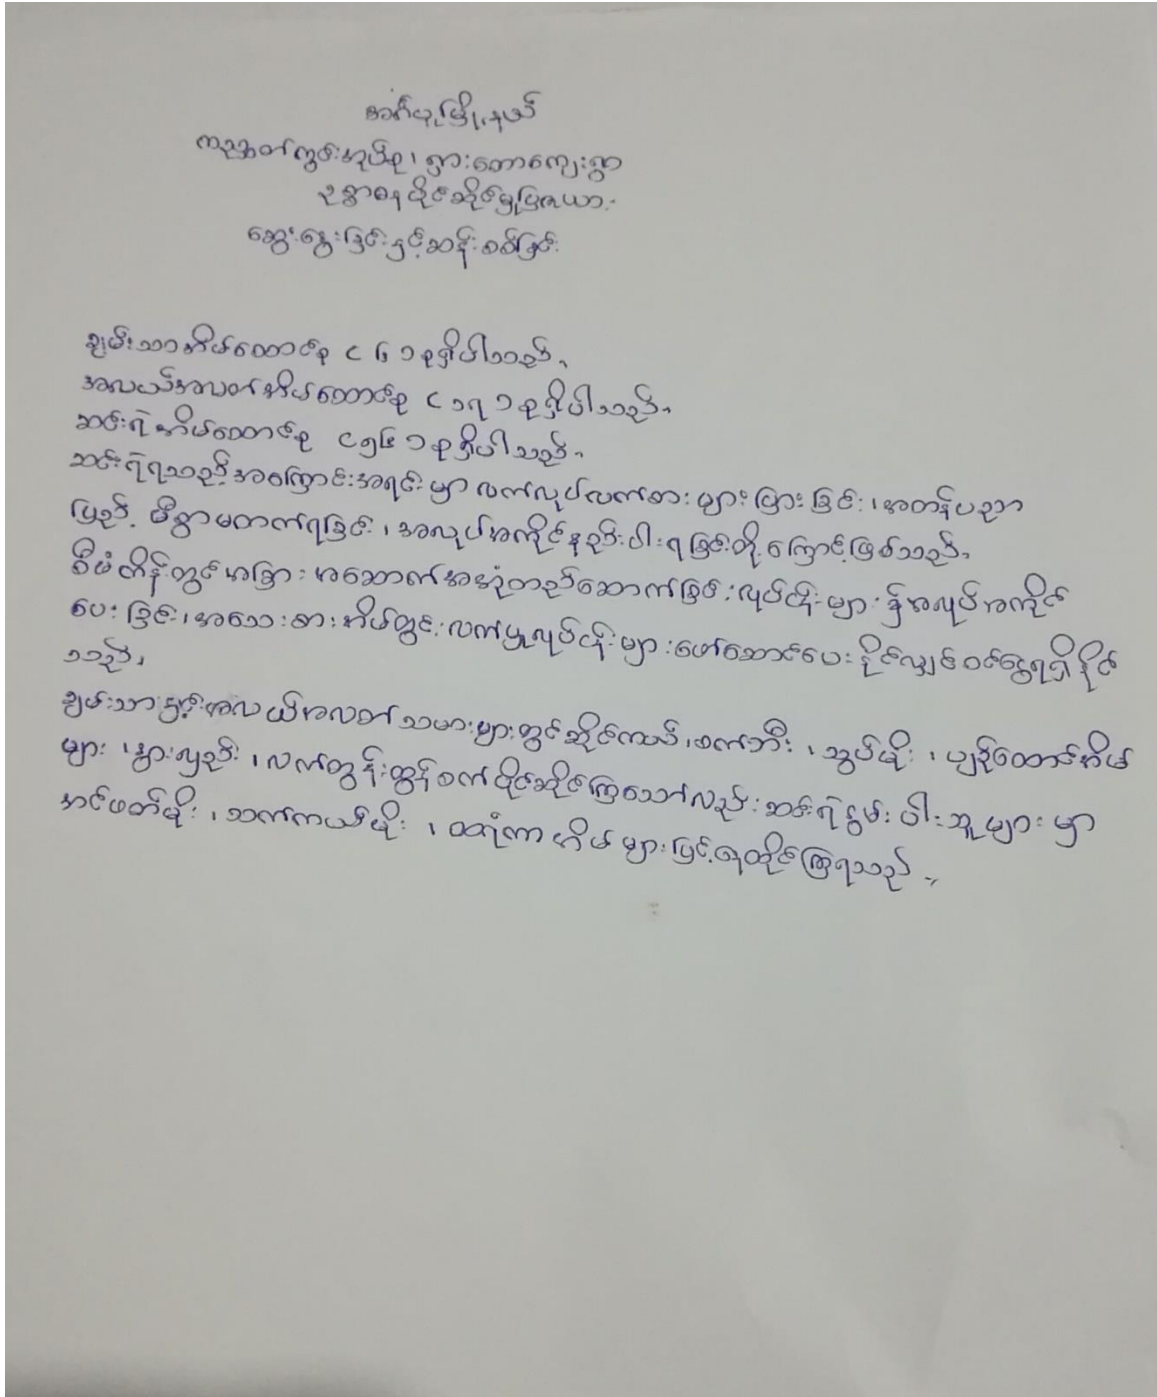 အင်္ဂပူမြို့နယ်
ကညွတ်ကွင်းအုပ်စု၊ ရှားတောကျေးရွာ
ဥစ္စာဓနပိုင်ဆိုင်မှုပြဇယား
ဆွေးနွေးခြင်းနှင့်ဆန်းစစ်ခြင်း
ချမ်းသာအိမ်ထောင်စု ( ၆ ) စုရှိပါသည်။
အလယ်အလတ်အိမ်ထောင်စု ( ၁၇ ) စုရှိပါသည်။
ဆင်းရဲအိမ်ထောင်စု ( ၅၆ ) စုရှိပါသည်။
ဆင်းရဲရသည့်အကြောင်းအရင်းမှာ လက်လုပ်လက်စားများပြားခြင်း၊ အတန်ပညာ
ပြည့်မီစွာမတက်ရခြင်း၊ အလုပ်အကိုင်နည်းပါးရခြင်းတို့ကြောင့်ဖြစ်သည်။
စီမံကိန်းတွင်အခြားအဆောက်အအုံတည်ဆောက်ခြင်းလုပ်ငန်းများ၌အလုပ်အကိုင်
ပေးခြင်း၊ အသေးစားအိမ်တွင်းလက်မှုလုပ်ငန်းများဖော်ဆောင်ပေးနိုင်လျှင်ဝင်ငွေရရှိနိုင်
သည်။
ချမ်းသာနှင့်အလယ်အလတ်သမားများတွင်ဆိုင်ကယ်၊ စက်ဘီး၊ သွပ်မိုး၊ ပျဉ်ထောင်အိမ်
များ၊ နွားလှည်း၊ လက်တွန်းထွန်စက်ပိုင်ဆိုင်ကြသော်လည်းဆင်းရဲနွမ်းပါးသူများမှာ
အင်ဖက်မိုး၊ သက်ကယ်မိုး၊ ထရံကာအိမ်များဖြင့်နေထိုင်ကြရသည်။